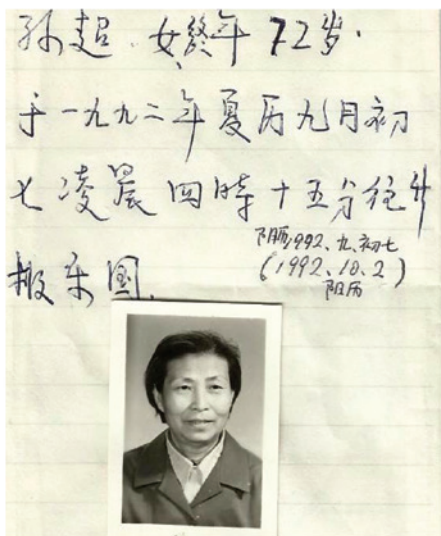 孙超.女,终年72岁.
于一九九二年夏历九月初
七凌晨四時十五分往升
极乐国.
阴历1992、九、初七
(1992、10、2)
阳历